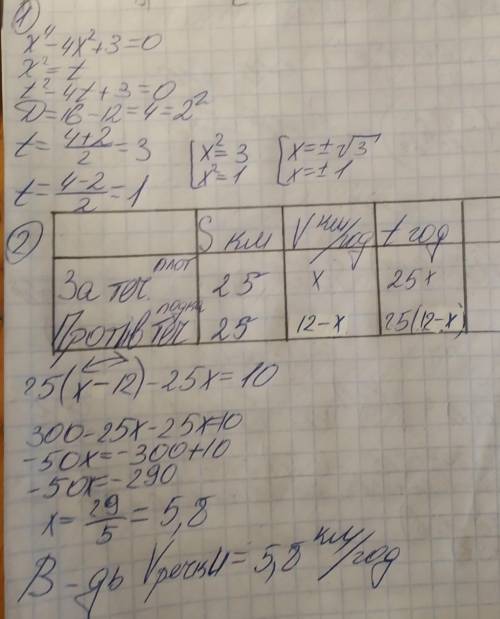 1
x⁴-4x²+3=0
x²=t
t²-4t+3=0
D=16-12=4=2²
t=(4+2)/2=3 [x²=3 [x=±√3
t=(4-2)/2=1 x²=1 x=±1
2 S км V км/год t год
За теч. плот 25 x 25x
Против теч лодки 25 12-x 25(12-x)
25(x-12)-25x=10
300-25x-25x=10
-50x=-300+10
-50x=-290
x=29/5=5,8
В-дь Vречки=5,8 км/год